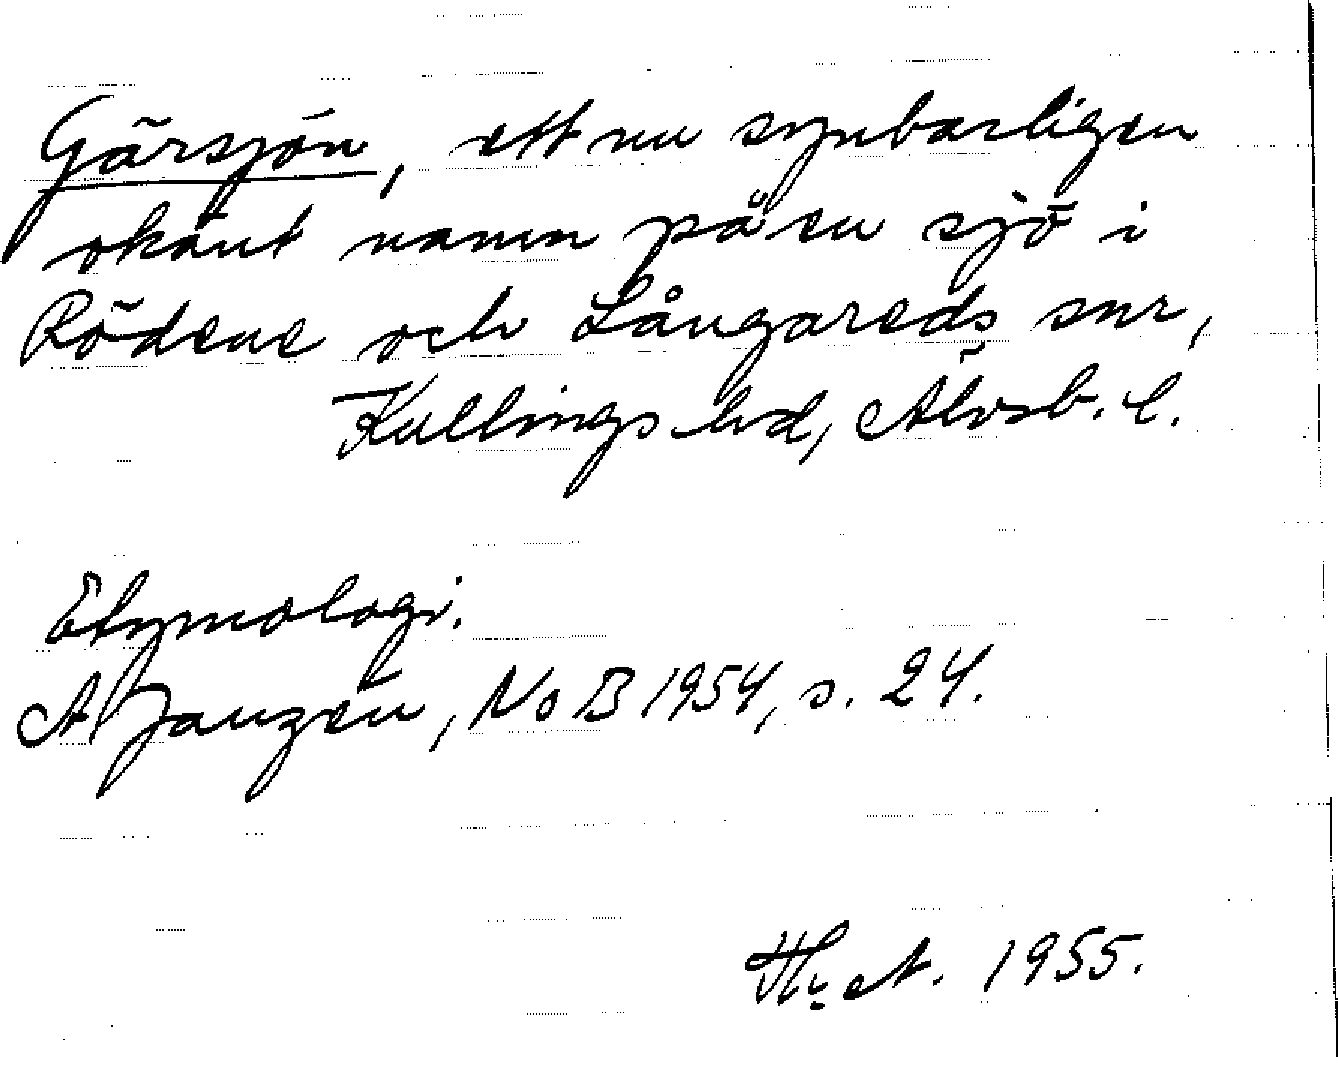 Gärsjön, ett nu synbarligen
okänt namn på en sjö i
Rödene och Långareds snr,
Kullings hd, Älvsb. l.
Etymologi.
A Janzén, NoB 1954, s. 24.
Th. A. 1955.